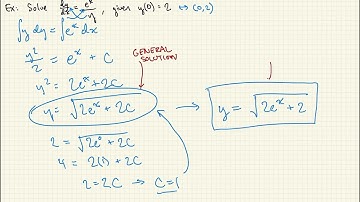 Ex: Solve dy/dx = e^x/y, given y(0)=2 ↔ (0,2)
∫y dy = ∫e^x dx
y²/2 = e^x + C
GENERAL SOLUTION
y² = 2e^x + 2C
y = √(2e^x + 2C) → y = √(2e^x + 2)
2 = √(2e^0 + 2C)
4 = 2(1) + 2C
2 = 2C → C = 1